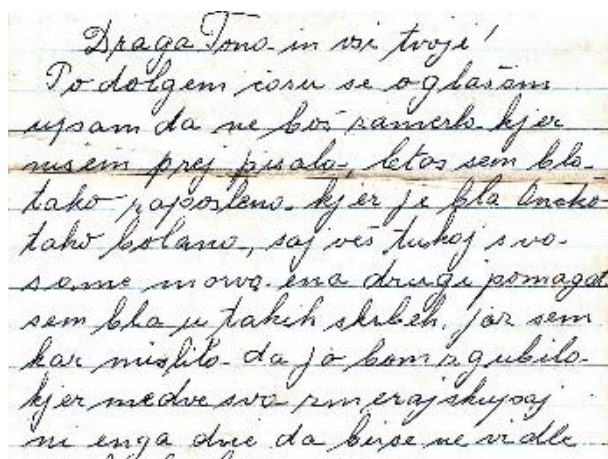 Draga Tona in vsi tvoji!
Po dolgem času se oglašam
upam da ne boš zamerla kjer
nisem prej pisala, letos sem bla
tako zaposlena kjer je bla Ancka
tako bolana, saj veš tukaj svo
same morva ena drugi pomagat
sem bla u takih skrbeh, jaz sem
kar mislila da jo bom zgubila
kjer medve sva zmeraj skupaj
ni enga dne da bi se ne vidle